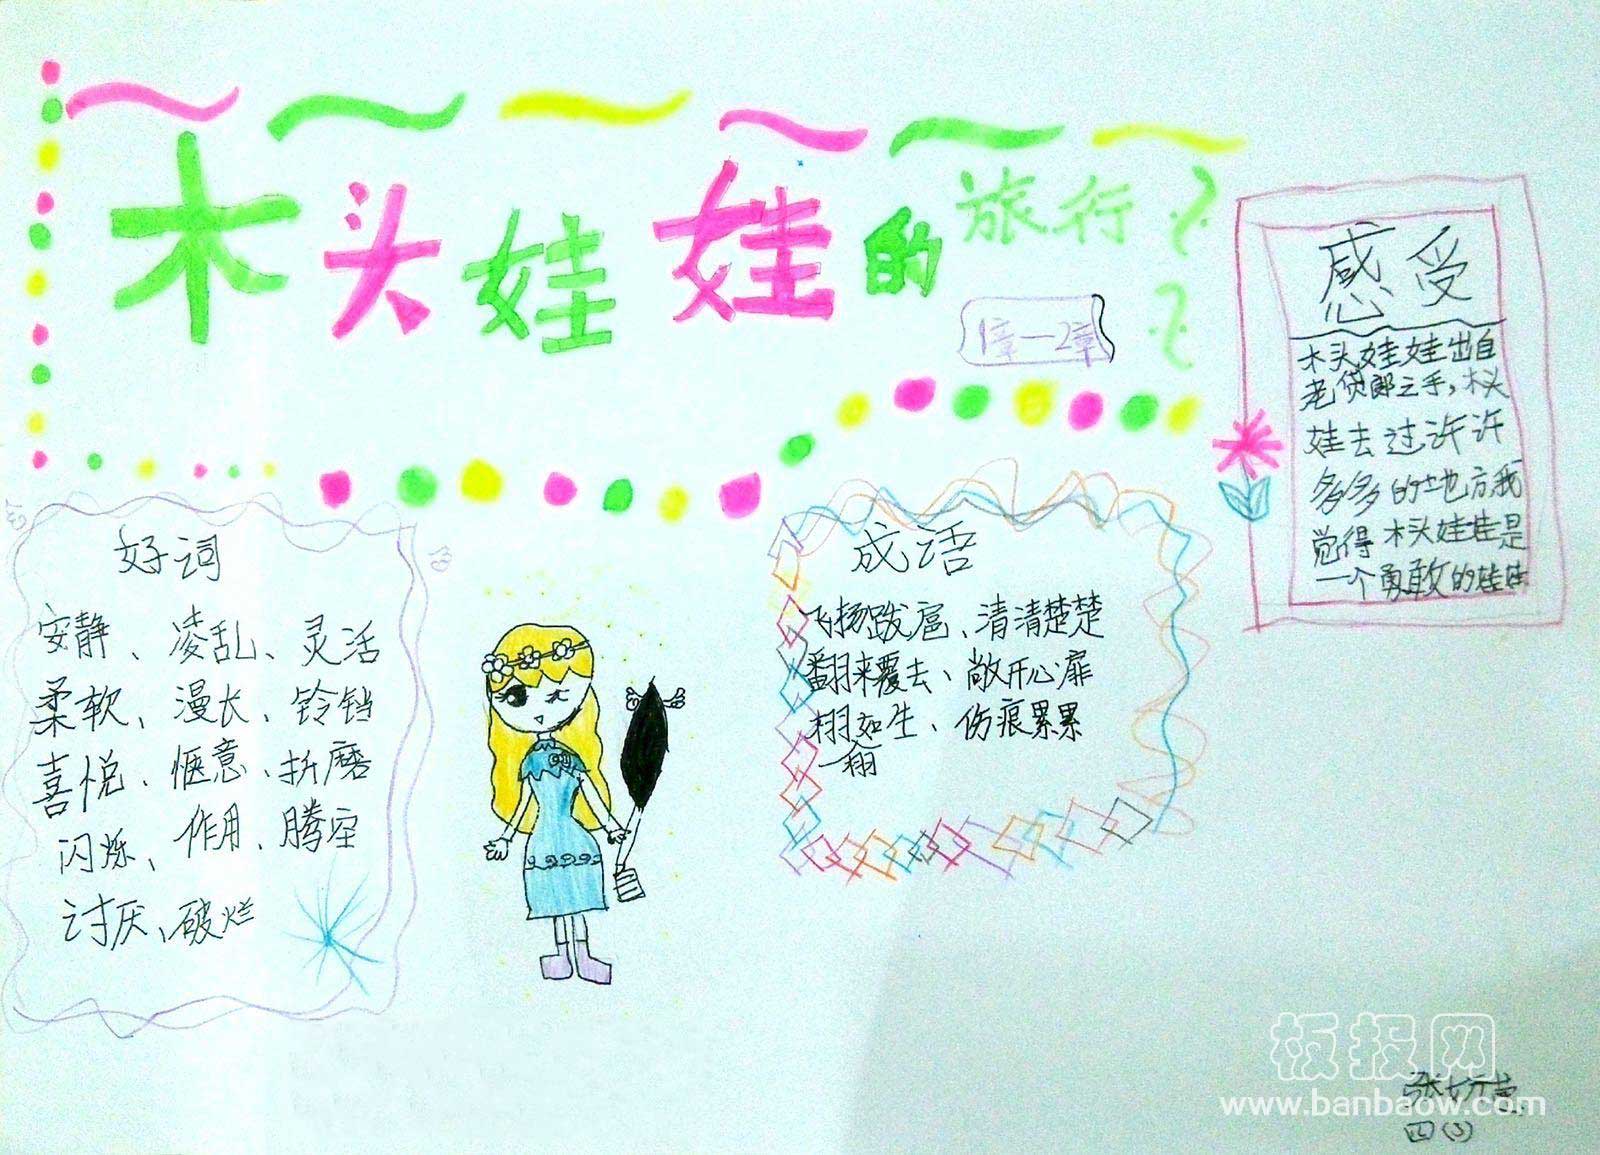 木头娃娃的旅行
1章一2章
感受
木头娃娃出自
老货郎之手,木头
娃去过许许
多多的地方我
觉得木头娃娃是
一个勇敢的娃娃
好词
安静、凌乱、灵活
柔软、漫长、铃铛
喜悦、惬意、折磨
闪烁、作用、腾空
讨厌、破烂
成语
飞扬跋扈、清清楚楚
翻来覆去、敞开心扉
栩如生、伤痕累累
一翔
板报网
www.banbaow.com
四(3)